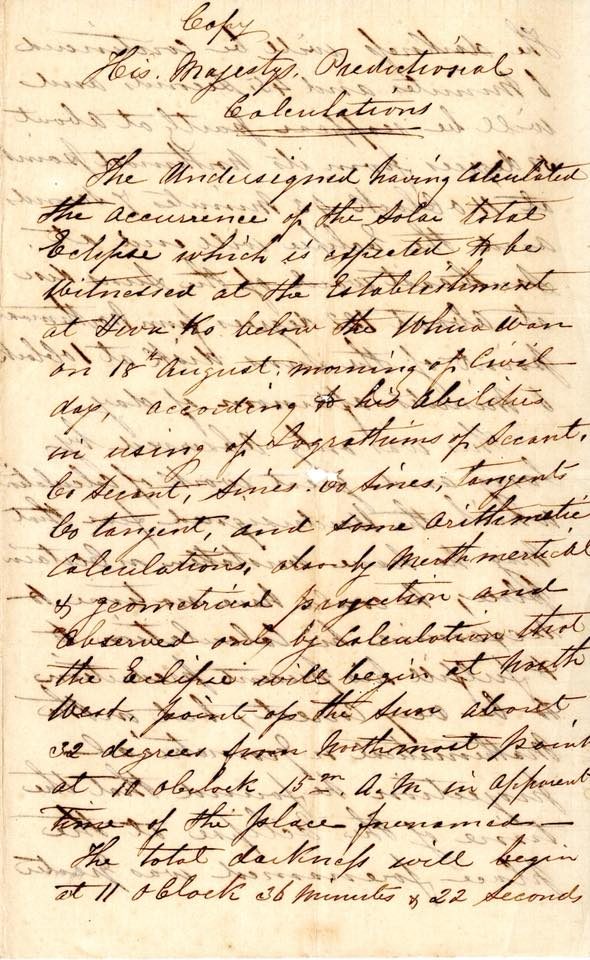 Copy
His Majestys. Predictional
Calculations
The Undersigned having Calculated
the accurrence of the Solar total
Eclipse which is expected to be
witnessed at the Establishment
at Hwa Ko below the Whua Wan
on 18th August. morning of Civil
day, according to his abilities
in using of Lograthims of Secant,
Co Secant, Sines. Co Sines, tangents
Co tangent, and some arithmetic
Calculations, also by
& geometrical projection and
observed only by Calculation that
the Eclipse will begin at North
West. point of the Sun about
32 degrees from Northmost point
at 10 oClock 15m. A.M. in apparent
time of the place forenamed—
The total darkness will begin
at 11 oClock 36 Minutes & 22 seconds